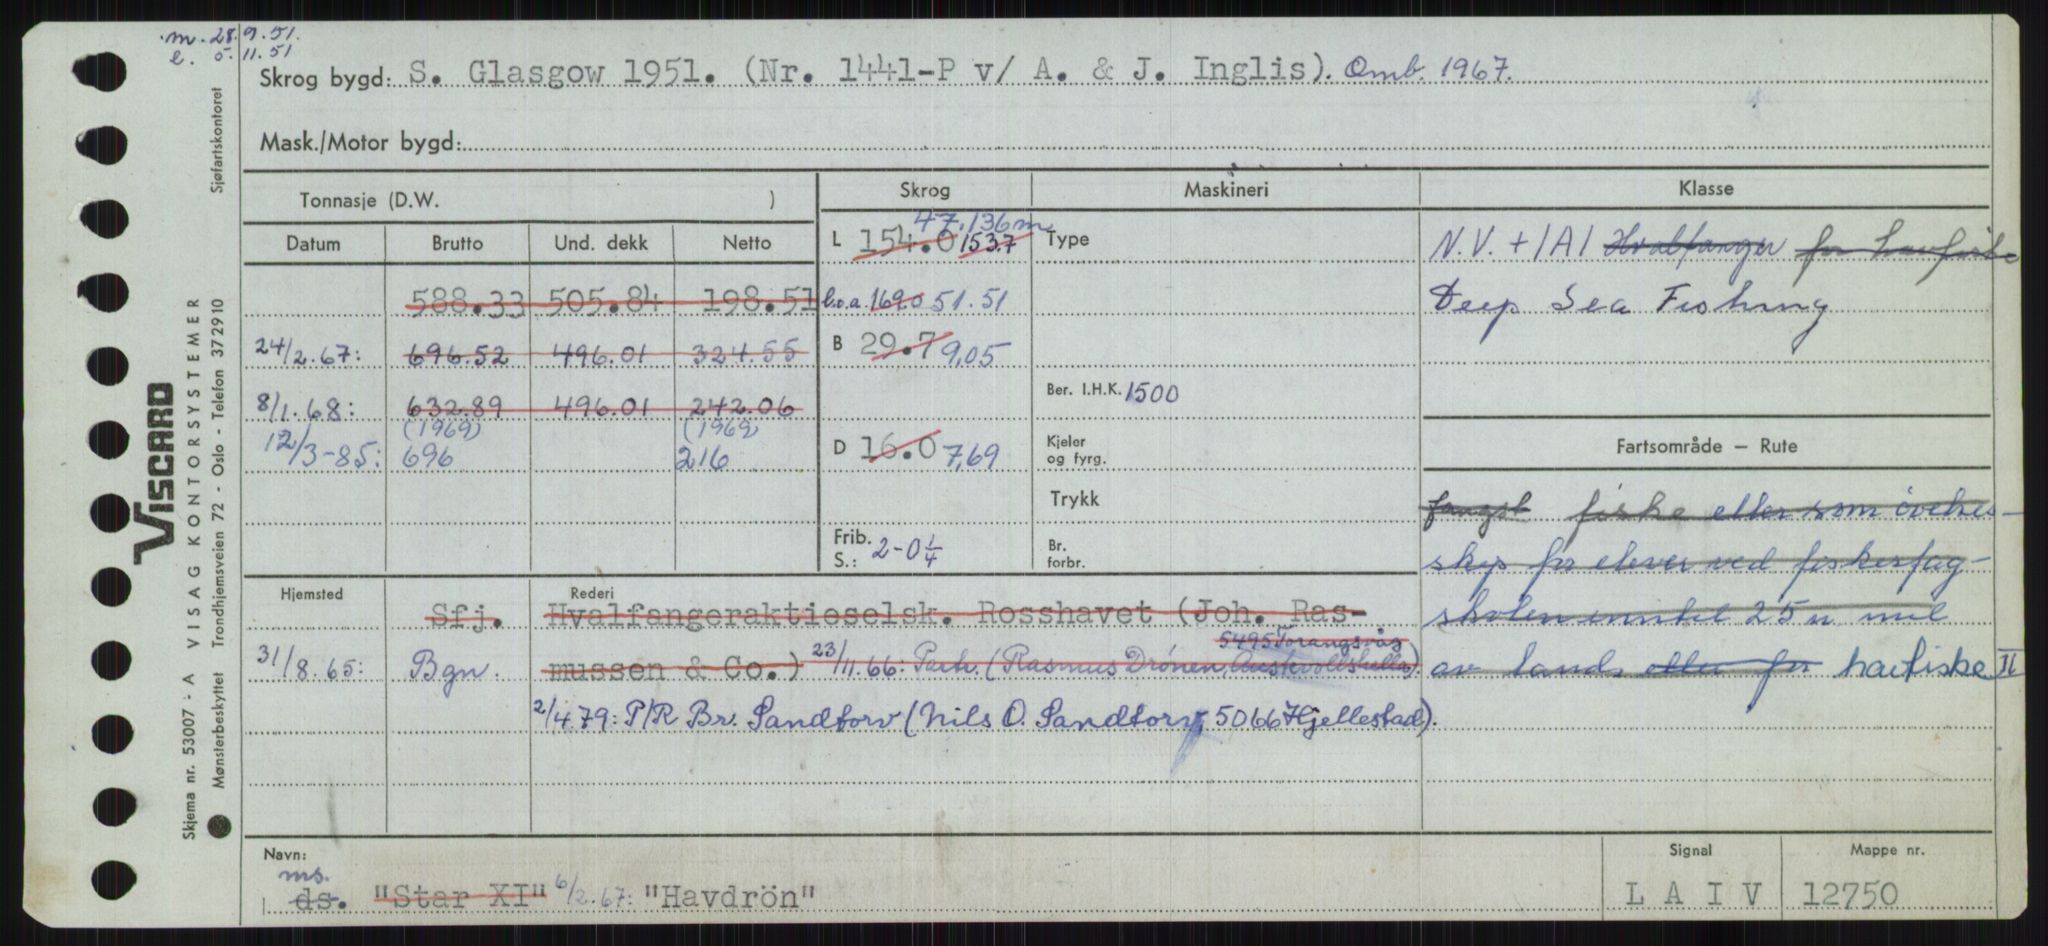 m. 28.9.51.
l. 5.11.51
Skrog bygd: S. Glasgow 1951. (Nr. 1441-P v/ A. & J. Inglis). Omb. 1967.
Mask./Motor bygd:
Tonnasje (D.W. )
Datum Brutto Und. dekk Netto
588.33 505.84 198.51
24/2.67: 696.52 496.01 324.55
8/1.68: 632.89 496.01 242.06
(1969) (1969)
12/3-85: 696 216
Skrog
47.136m
L 154.0 153.7
l.o.a. 169.0 51.51
B 29.7 9,05
D 16.0 7,69
Frib.
S.: 2-0 1/4
Maskineri
Type
Ber. I.H.K. 1500
Kjeler
og fyrg.
Trykk
Br.
forbr.
Klasse
N.V. +1A1 Hvalfanger for havfiske
Deep Sea Fishing
Fartsområde – Rute
fangst fiske eller som övelses-
skip for elever ved fiskerfag-
skolen inntil 25 n. mil
av land eller for havfiske II
Hjemsted Rederi
Sfj. Hvalfangeraktieselsk. Rosshavet (Joh. Ras-
5495 Torangsvåg
31/8.65: Bgn. mussen & Co.) 23/11.66: Parh. (Rasmus Drönen, Austevollshella).
2/4.79: P/R Br. Sandtorv (Nils O. Sandtorv, 5066 Hjellestad).
Navn:
ms.
ds. "Star XI" 6/2.67: "Havdrön"
Signal
L A I V
Mappe nr.
12750
Skjema nr. 53007 - A VISAG KONTORSYSTEMER
VISCARD
Mønsterbeskyttet Trondhjemsveien 72 - Oslo - Telefon 372910 Sjøfartskontoret